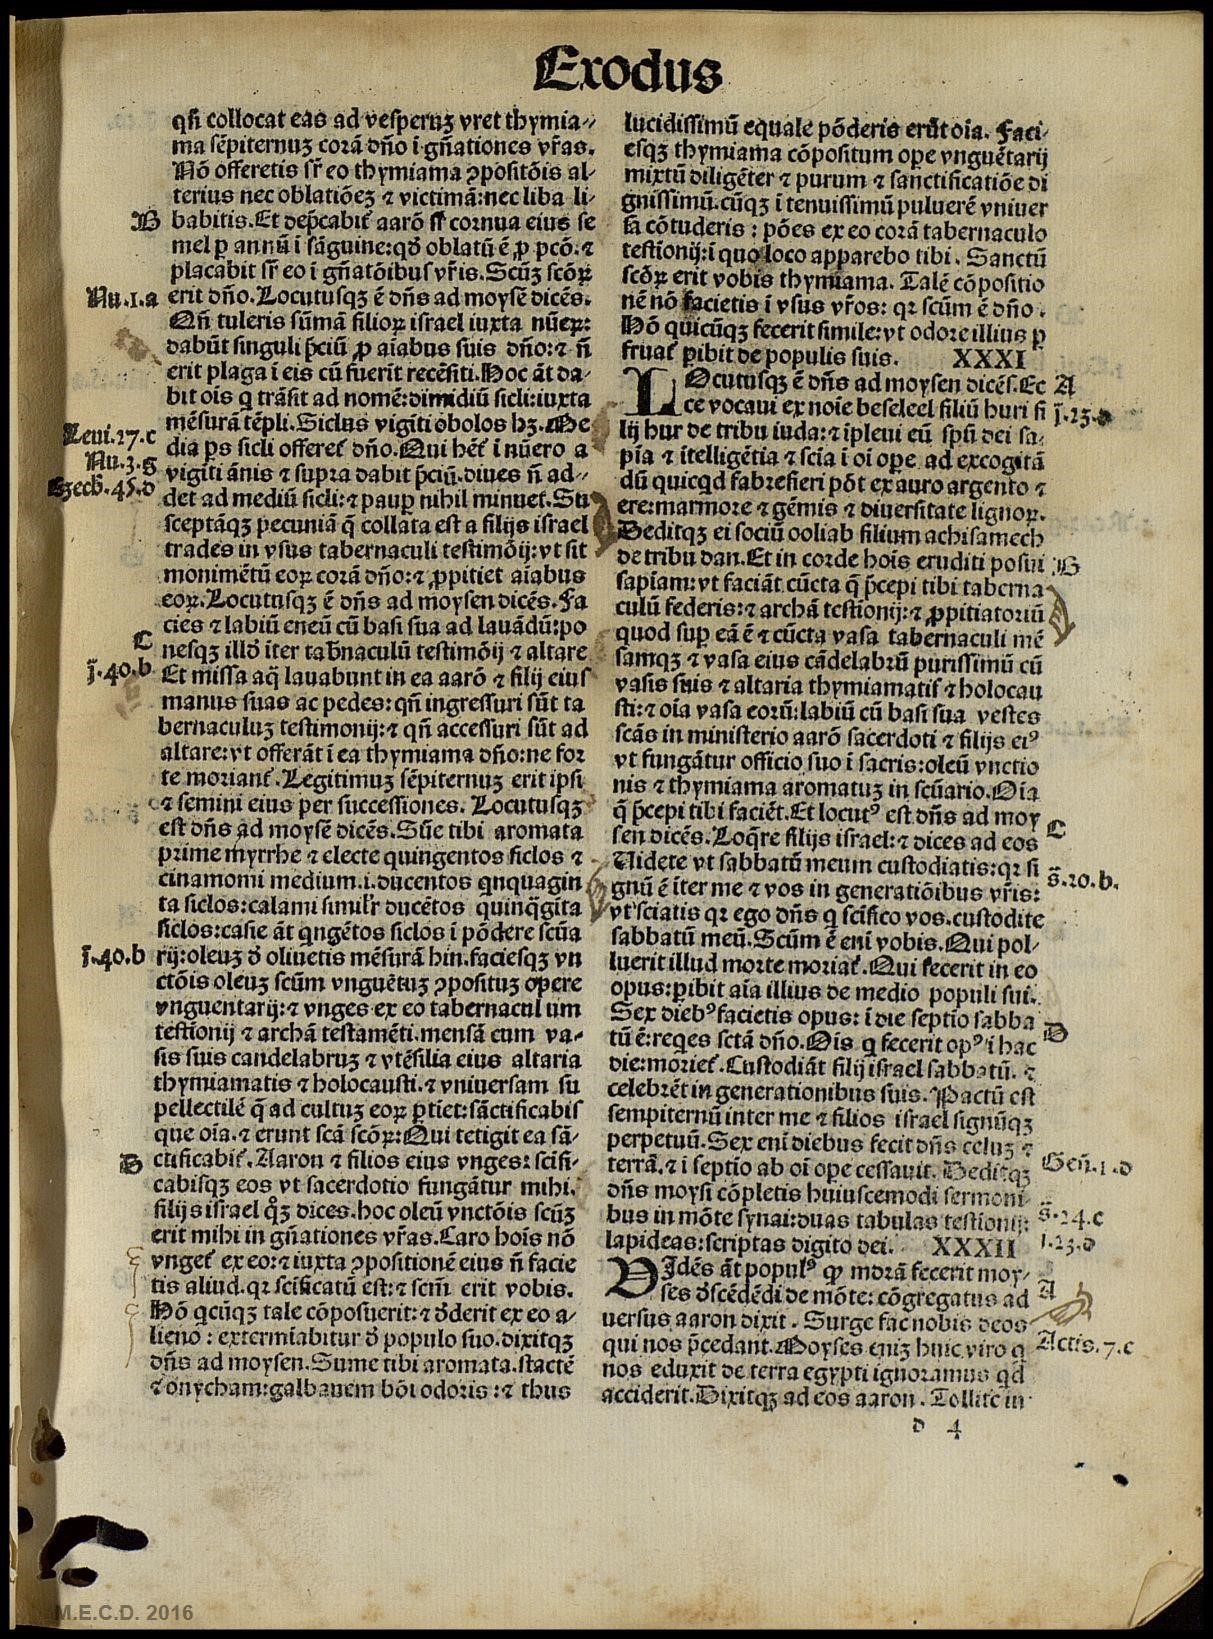 Exodus
qñ collocat eas ad vesperuꝫ vret thymia⸗
ma sẽpiternuꝫ corã dño ĩ gñationes vr̃as.
Nõ offeretis sr̃ eo thymiama ꝯpositõis al⸗
terius nec oblatiõeꝫ ⁊ victimã: nec liba li⸗
B
babitis. Et dep̃cabit᷑ aarõ sr̃ cornua eius se
mel ꝑ annũ ĩ sãguine: qđ oblatũ ẽ ꝓ pcõ. ⁊
placabit sr̃ eo ĩ gñatõibus vr̃is. Scũꝫ scõꝝ
Nu.1.a
erit dño. Locutusqꝫ ẽ dñs ad moysẽ dicẽs.
Qñ tuleris sũmã filioꝝ israel iuxta nũeꝝ:
dabũt singuli p̃ciũ ꝓ aĩabus suis dño: ⁊ ñ
erit plaga ĩ eis cũ fuerit recẽsiti. Hoc ãt da⸗
bit oĩs q̇ trãsit ad nomẽ: dimidiũ sicli: iuxta
mẽsurã tẽpli. Siclus vigĩti obolos hꝫ. Me
Leui.27.c
dia ꝑs sicli offeret᷑ dño. Qui hẽt᷑ ĩ nũero a
Nu.3.g
vigĩti ãnis ⁊ supra dabit p̃ciũ. diues ñ ad⸗
Ezech.45.d
det ad mediũ sicli: ⁊ pauꝑ nihil minuet. Su
sceptãqꝫ pecuniã q̃ collata est a filijs israel
trades in vsus tabernaculi testimõij: vt sit
monimẽtũ eoꝝ corã dño: ⁊ ꝓpitiet aĩabus
eoꝝ. Locutusqꝫ ẽ dñs ad moysen dicẽs. Fa
cies ⁊ labiũ eneũ cũ basi sua ad lauãdũ: po
C
nesqꝫ illđ ĩter tab̃naculũ testimõij ⁊ altare
j̃.40.b
Et missa aq̃ lauabunt in ea aarõ ⁊ filij eius
manus suas ac pedes: qñ ingressuri sũt ta
bernaculuꝫ testimonij: ⁊ qñ accessuri sũt ad
altare: vt offerãt ĩ ea thymiama dño: ne for
te moriant᷑. Legitimuꝫ sẽpiternuꝫ erit ipsi
⁊ semini eius per successiones. Locutusqꝫ
est dñs ad moysẽ dicẽs. Sũe tibi aromata
prime myrrhe ⁊ electe quingentos siclos ⁊
cinamomi medium .i. ducentos q̇nquagin
ta siclos: calami simil'r ducẽtos quinq̃gĩta
siclos: casie ãt q̇ngẽtos siclos ĩ põdere scũa
j̃.40.b
rij: oleuꝫ đ oliuetis mẽsurã hin. faciesqꝫ vn
ctõis oleuꝫ scũm vnguẽtuꝫ ꝯpositũꝫ opere
vnguentarij: ⁊ vnges ex eo tabernacul um
testĩonij ⁊ archã testamẽti. mensã cum va⸗
sis suis candelabruꝫ ⁊ vtẽsilia eius altaria
thymiamatis ⁊ holocausti. ⁊ vniuersam su
pellectilẽ q̃ ad cultuꝫ eoꝝ ꝑtĩet: sãctificabis
que oĩa. ⁊ erunt scã scõꝝ: Qui tetigit ea sã⸗
D
ctificabit᷑. Aaron ⁊ filios eius vnges: scifi⸗
cabisqꝫ eos vt sacerdotio fungãtur mihi.
filijs israel qͦꝫ dices. hoc oleũ vnctõis scũꝫ
erit mihi in gñationes vr̃as. Caro hoĩs nõ
vnget᷑ ex eo: ⁊ iuxta ꝯpositionẽ eius ñ facie
tis aliud. qr scificatũ est: ⁊ scm̃ erit vobis.
Hõ q̇cũqꝫ tale cõposuerit: ⁊ đderit ex eo a⸗
lieno: extermĩabitur đ populo suo. dixitqꝫ
dñs ad moysen. Sume tibi aromata. stactẽ
⁊ onycham: galbanem bõi odoris: ⁊ thus
lucidissimũ equale põderis erũt oĩa. Faci⸗
esqꝫ thymiama cõpositum oꝑe vnguẽtarij
mixtũ diligẽter ⁊ purum ⁊ sanctificatiõe di
gnissimũ. cũqꝫ ĩ tenuissimũ puluerẽ vniuer
sa cõtuderis: pões ex eo corã tabernaculo
testĩonij: ĩ quo loco apparebo tibi. Sanctũ
scõꝝ erit vobis thymiama. Talẽ cõpositio
nẽ nõ facietis ĩ vsus vr̃os: qr scũm ẽ dño.
Hõ quicũqꝫ fecerit simile: vt odore illius ꝑ
fruat᷑ ꝑibit de populis suis. XXXI
LOcutusqꝫ ẽ dñs ad moysen dicẽs. Ec
A
ce vocaui ex noĩe beseleel filiũ huri fi
j̃.25.d
lij hur de tribu iuda: ⁊ ĩpleui eũ spũ dei sa⸗
pĩa ⁊ ĩtelligẽtia ⁊ scĩa ĩ oĩ oꝑe ad excogitã
dũ quicq̇d fabrefieri põt ex auro argento ⁊
ere: marmore ⁊ gẽmis ⁊ diuersitate lignoꝝ.
Deditqꝫ ei sociũ ooliab filium achisamech
de tribu dan. Et in corde hoĩs eruditi posui
B
sapĩam: vt faciãt cũcta q̃ p̃cepi tibi taberna
culũ federis: ⁊ archã testĩonij: ⁊ ꝓpitiatoriũ
quod suꝑ eã ẽ ⁊ cũcta vasa tabernaculi mẽ
samqꝫ ⁊ vasa eius cãdelabrũ purissimũ cũ
vasis suis ⁊ altaria thymiamatis ⁊ holocau
sti: ⁊ oĩa vasa eorũ: labiũ cũ basi sua vestes
scãs in ministerio aarõ sacerdoti ⁊ filijs eiꝰ
vt fungãtur officio suo ĩ sacris: oleũ vnctio
nis ⁊ thymiama aromatuꝫ in scũario. Oĩa
q̃ p̃cepi tibi faciẽt. Et locutꝰ est dñs ad moy
C
sen dicẽs. Loq̃re filijs israel: ⁊ dices ad eos
Uidete vt sabbatũ meum custodiatis: qr si
s̃.20.b.
gnũ ẽ ĩter me ⁊ vos in generatiõibus vr̃is:
vt sciatis qr ego dñs q̇ scifico vos. custodite
sabbatũ meũ. Scũm ẽ enĩ vobis. Qui pol⸗
luerit illud morte moriat᷑. Qui fecerit in eo
opus: ꝑibit aĩa illius de medio populi sui.
Sex diebꝰ facietis opus: ĩ die septĩo sabba
D
tũ ẽ: reqͥes sctã dño. Oĩs q̇ fecerit opꝰ ĩ hac
die: moriet᷑. Custodiãt filij israel sabbatũ. ⁊
celebrẽt in generationibus suis. Pactũ est
sempiternũ inter me ⁊ filios israel signũqꝫ
perpetuũ. Sex enĩ diebus fecit dñs celuꝫ ⁊
Geñ.1.d
terrã. ⁊ ĩ septĩo ab oĩ oꝑe cessauit. Deditqꝫ
dñs moysi cõpletis huiuscemodi sermoni
s̃.24.c
bus in mõte synai: duas tabulas testĩonij:
j.23.d
lapideas: scriptas digito dei. XXXII
VIdẽs ãt populꝰ ꝙ morã fecerit moy⸗
A
ses đscẽdẽdi de mõte: cõgregatus ad
uersus aaron dixit. Surge fac nobis deos
Actis.7.c
qui nos p̃cedant. Moyses enĩꝫ huic viro q̇
nos eduxit de terra egypti ignoramus qđ
acciderit. Dixitqꝫ ad eos aaron. Tollite in
d 4
M.E.C.D. 2016